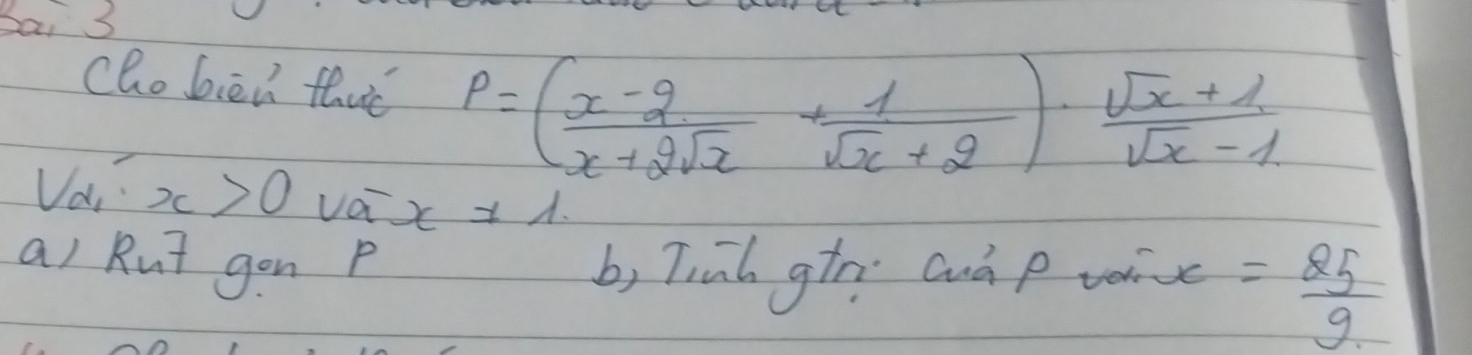 Bài 3
Cho biểu thức P = ( (x - 2)/(x + 2√x) + 1/(√x + 2) ) . (√x + 1)/(√x - 1)
Với x > 0 và x ≠ 1.
a) Rút gọn P b, Tính gtrị của P với x = 25/9.